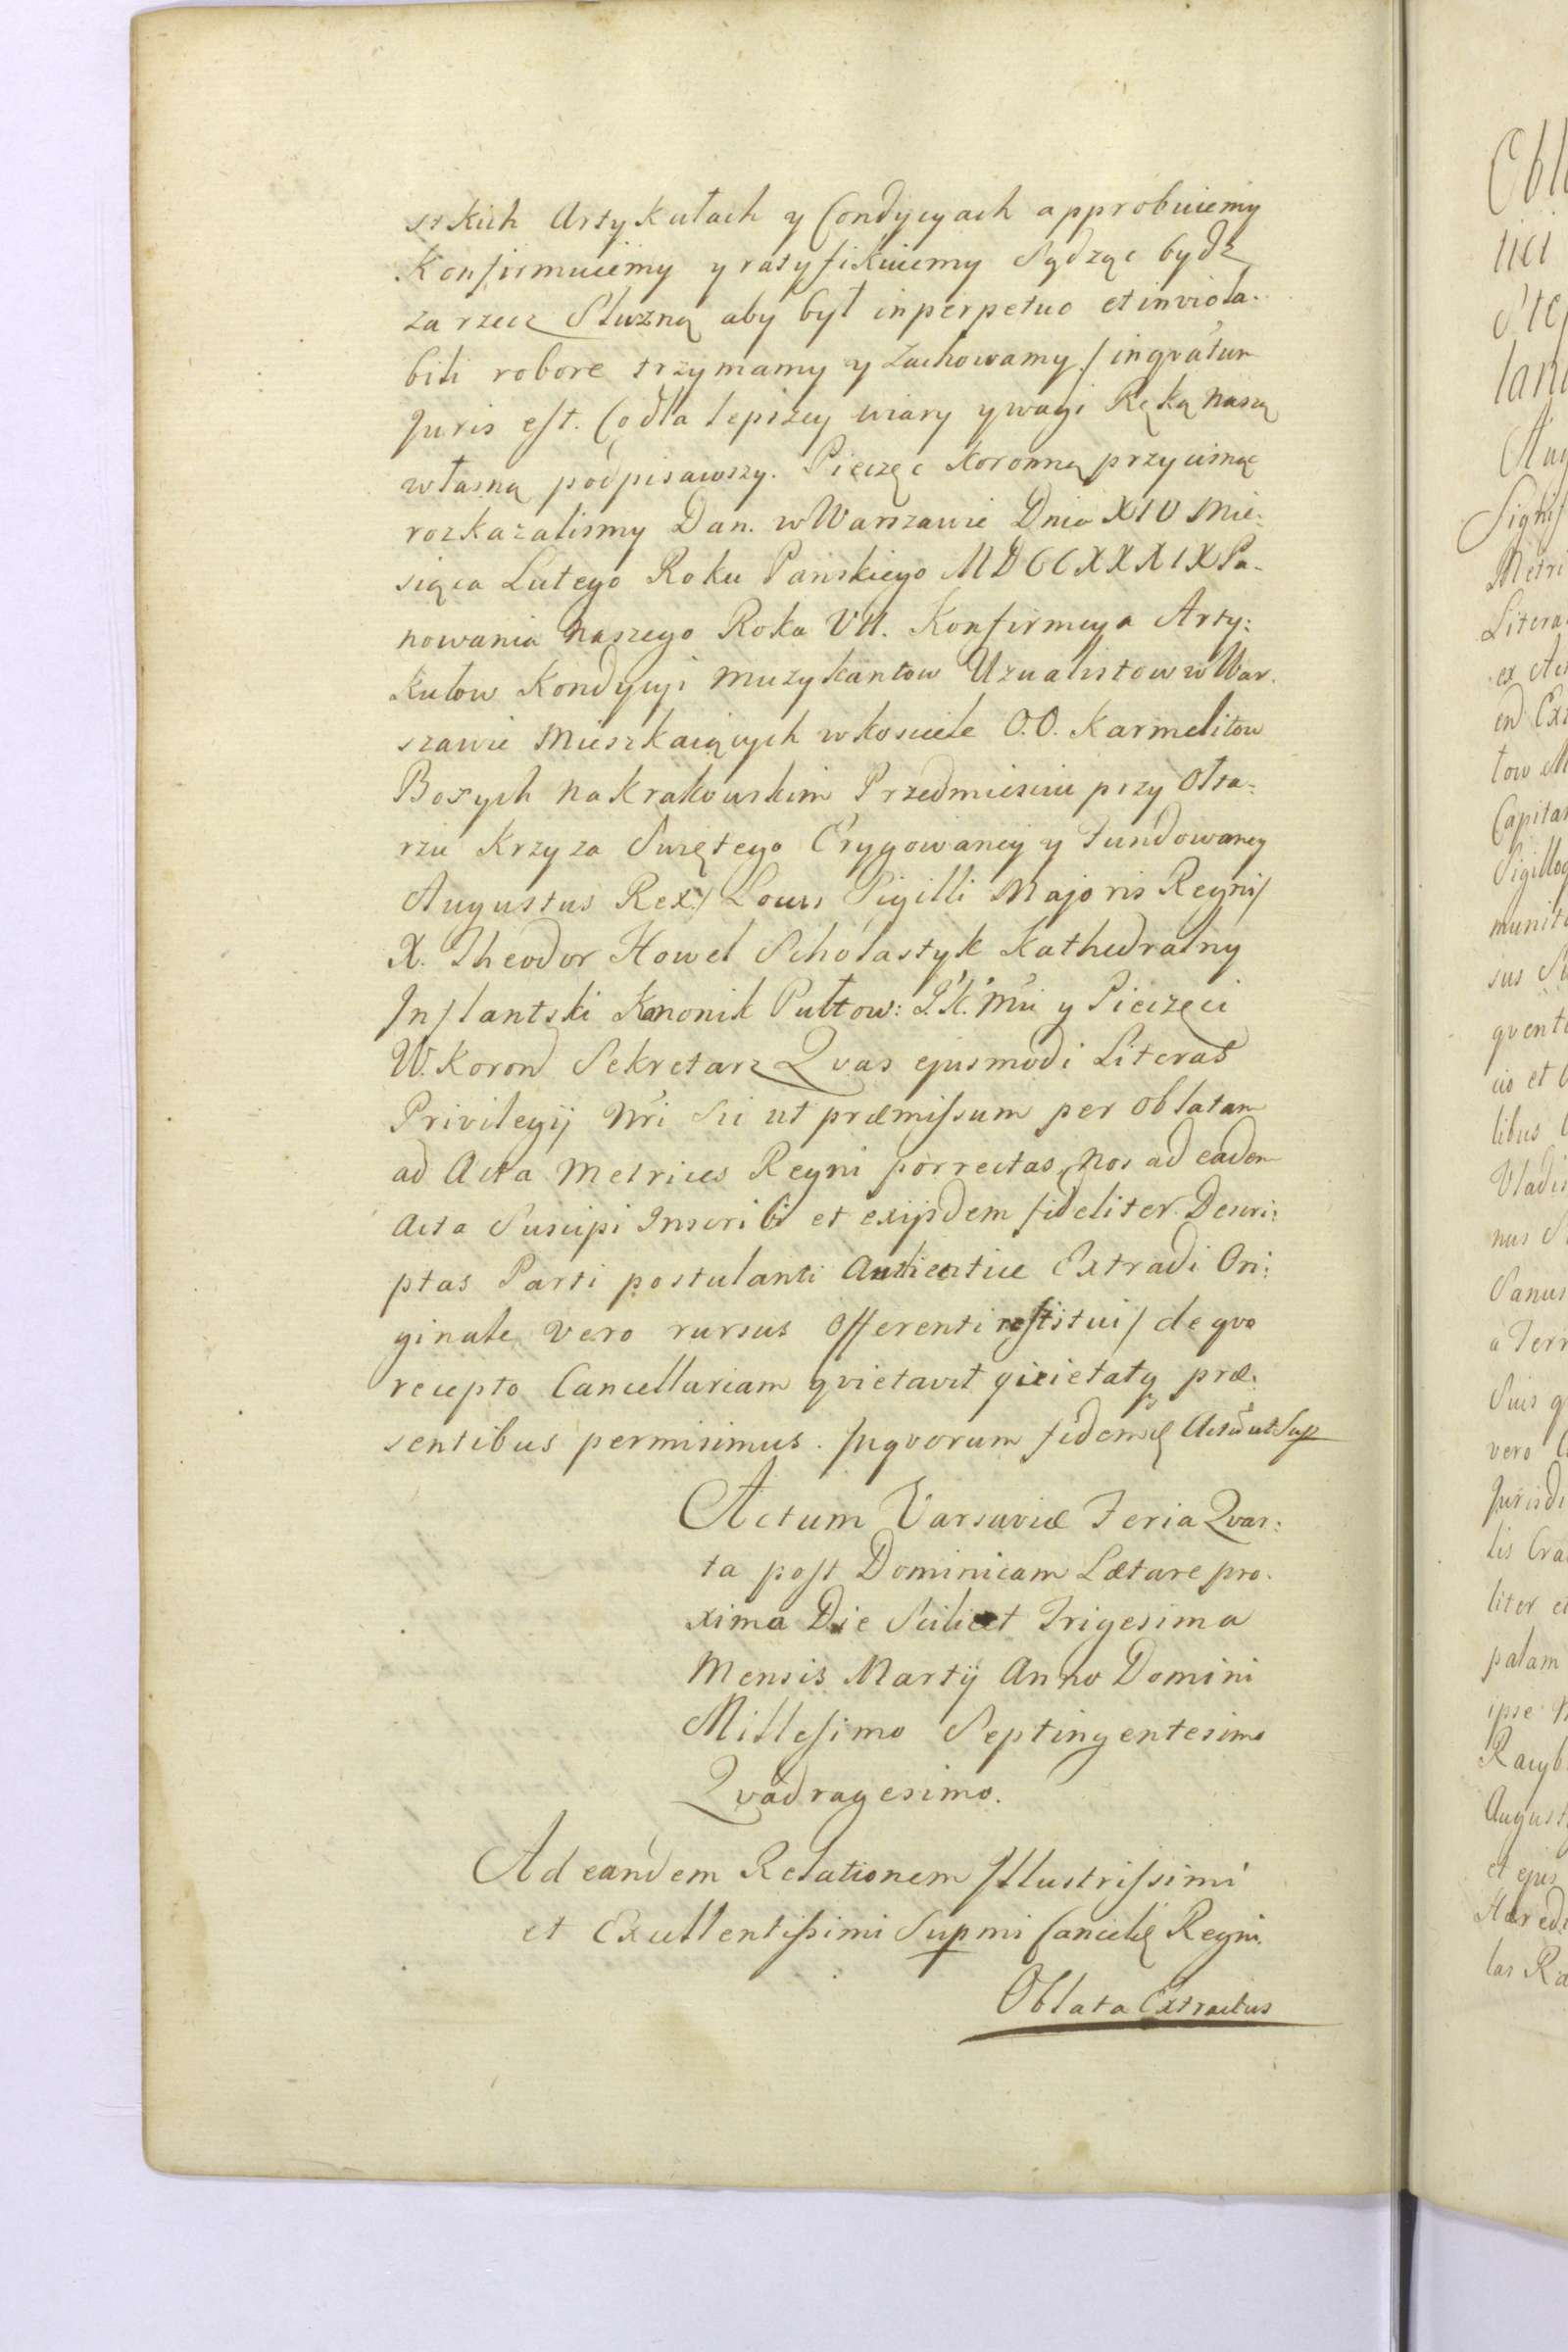 stkich Artykułach y Condycyach approbuiemy
Konfirmuiemy y ratyfikuiemy Sądząc bydz
za rzecz Słuzną aby był in perpetuo et inviola-
bili robore trzymamy y Zachowamy / inqvatum
Juris est. Co dla lepszey wiary y wagi Ręką naszą
własną podpisawszy. Pięczęc Koronną przycisnąc
rozkazalismy Dan. w Warszawie Dnia XIV Mie:
siąca Lutego Roku Panskiego MDCCXXXIX Pa-
nowania Naszego Roka VII. Konfirmcya Arty:
kułow Kondycyi Muzykantow Uzualistow w War.
szawie Mieszkaiących w kosciele O.O. Karmelitow
Bosych na Krakowskim Przedmiesciu przy Ołta:
rzu Krzyza Swiętego Erygowaney y Fundowaney
Augustus Rex / Locus Sigilli Majoris Regni /
X. Theodor Howel Scholastyk Kathedralny
Inflantski Kanonik Pułtow: J.K.Mci y Pieczęci
W. Koron Sekretarz Qvas ejusmodi Literas
Privilegij Nri Sui ut præmissum per Oblatam
ad Acta Metrices Regni porrectas, Nos ad eadem
Acta Suscipi Inscribi et exijsdem fideliter Descri:
ptas Parti postulanti Authentice Extradi Ori:
ginale vero rursus Offerenti restitui / de qvo
recepto Cancellariam qvietavit
præ:
sentibus permisimus. Inqvorum fidem
Actum Varsaviæ Feria Qvar:
ta post Dominicam Lætare pro.
xima Die Scilicet Trigesima
Mensis Martij Anno Domini
Millesimo Septingentesimo
Qvadragesimo.
Ad eandem Relationem Illustrissimi
et Excellentissimi Supmi Cancell Regni.
Oblata Extractus